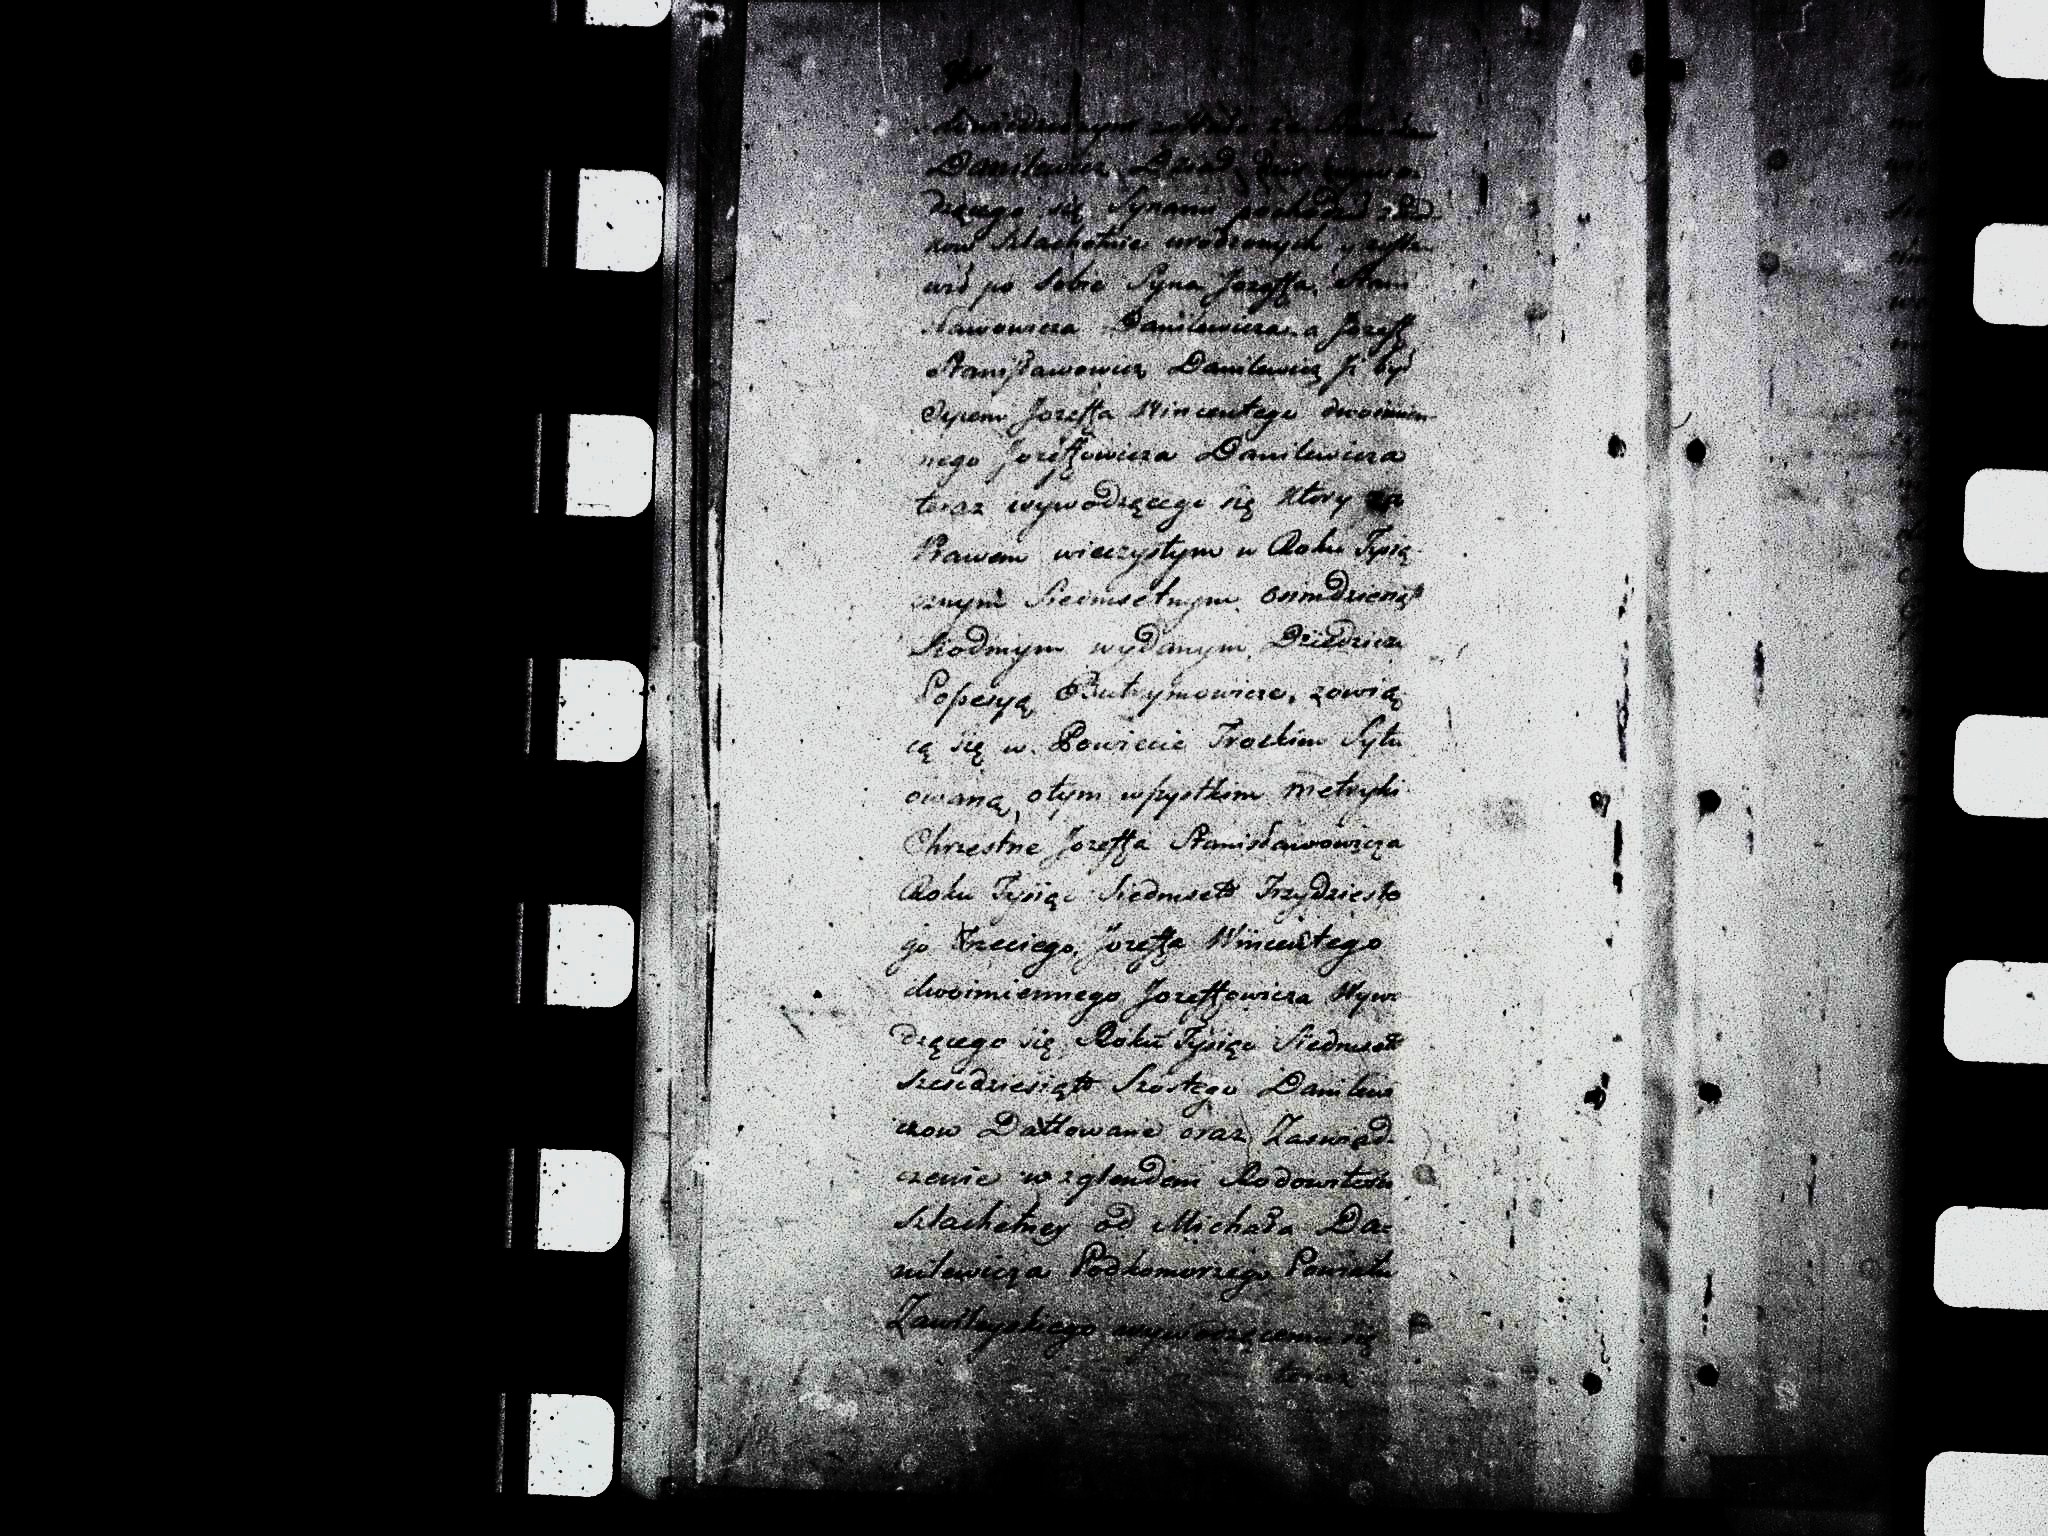 Danilewicz Dziad
dzącego się Synami pochodził z Rod
zow Szlachetnie urodzonych y zosta
wił po sobie Syna Jozeffa Stani
sławowicza Danilewicza, a Jozeff
Stanisławowicz Danilewicz Jż był
Oycem Jozeffa Wincentego dwoimien
nego Jozeffowicza Danilewicza
teraz wywodzącego się ktory za
Prawem wieczystym w Roku Tysią
cznym Siedmsetnym osmdziesiąt
Siodmym wydanym Dziedzicz
Possesyą Butrymowicze, zowią
cą się w Powiecie Trockim Sytu
owaną, o tym wszystkim metryki
Chrzestne Jozeffa Stanisławowicza
Roku Tysiąc Siedmset Trzydziesto
go Trzeciego, Jozeffa Wincentego
dwoimiennego Jozeffowicza Wywo
dzącego się Roku Tysiąc Siedmset
Szescdziesiąt Szostego Danilewi
czow Dattowane oraz Zaswiad
czenie wzglendem Rodowitosci
Szlachetney od Michała Da=
nilewicza Podkomorzego Powiatu
Zawileyskiego wywodzącemu się
teraz